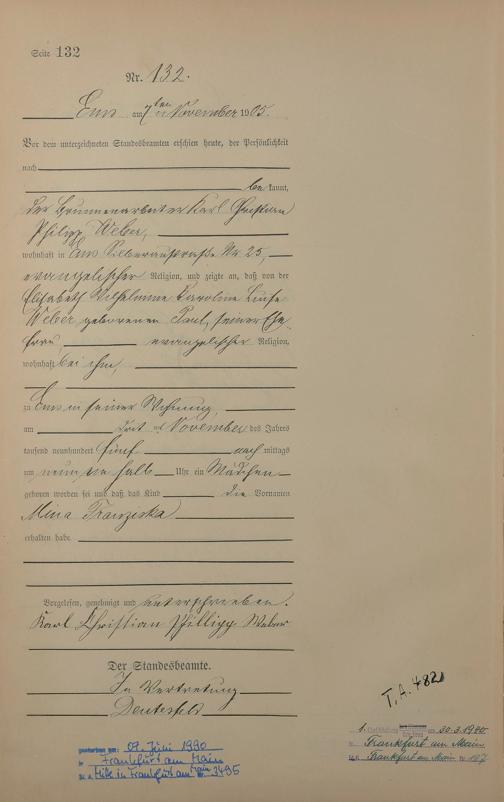 Seite 132
Nr. 132.
Ems am 7ten November 1905.
Vor dem unterzeichneten Standesbeamten erschien heute, der Persönlichkeit
nach
be kannt,
der Brunnenarbeiter Karl Christian
Philipp Weber,
wohnhaft in Ems Silberaustraße Nr. 25,
evangelischer Religion, und zeigte an, daß von der
Elisabeth Wilhelmine Karoline Luise
Weber geborenen Paul, seiner Ehe-
frau evangelischer Religion,
wohnhaft bei ihm,
zu Ems in seiner Wohnung,
am November des Jahres
tausend neunhundert fünf nach mittags
um neun ein halb Uhr ein Mädchen
geboren worden sei und daß das Kind die Vornamen
Mina Franziska
erhalten habe.
Vorgelesen, genehmigt und unterschrieben.
Karl Christian Phillipp Weber
Der Standesbeamte.
In Vertretung
T.A. 482
gestorben am: 09. Juni 1990
in Frankfurt am Main
Mitte in Frankfurt am Main 3495
1. 30.3.1940
in Frankfurt am Main
Frankfurt am Main